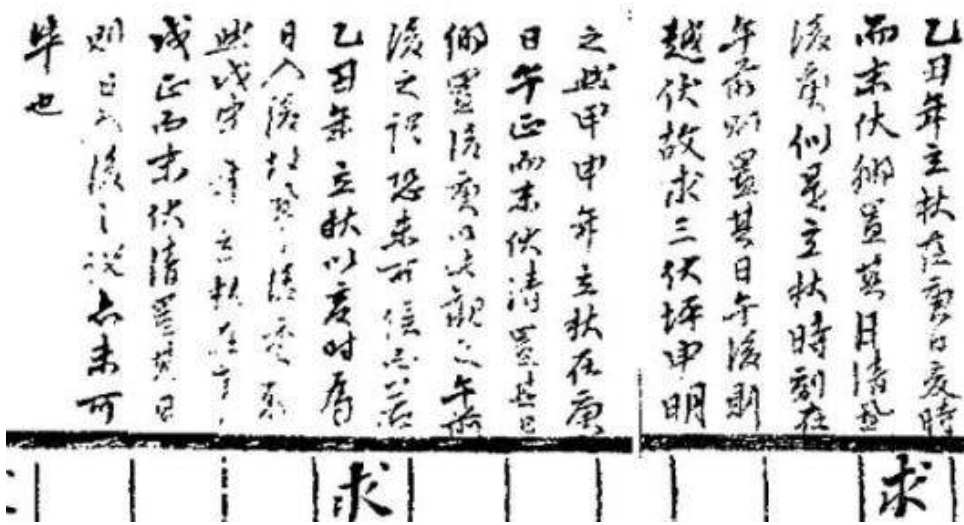 乙丑年立秋在庚日夜時
而末伏鄉置其日清
後庚似是立秋時刻在
午前則置其日午後則
越伏故求三伏坪申明
之然甲申年立秋在庚
日午正而末伏清置其日
鄉置後庚以此觀之午前
後之說恐未可信亦若
乙丑年立秋以夜时爲
日入後故
然戊年立秋在
戌正而末伏清置其日
則日入後之說亦未可
毕也
求
求